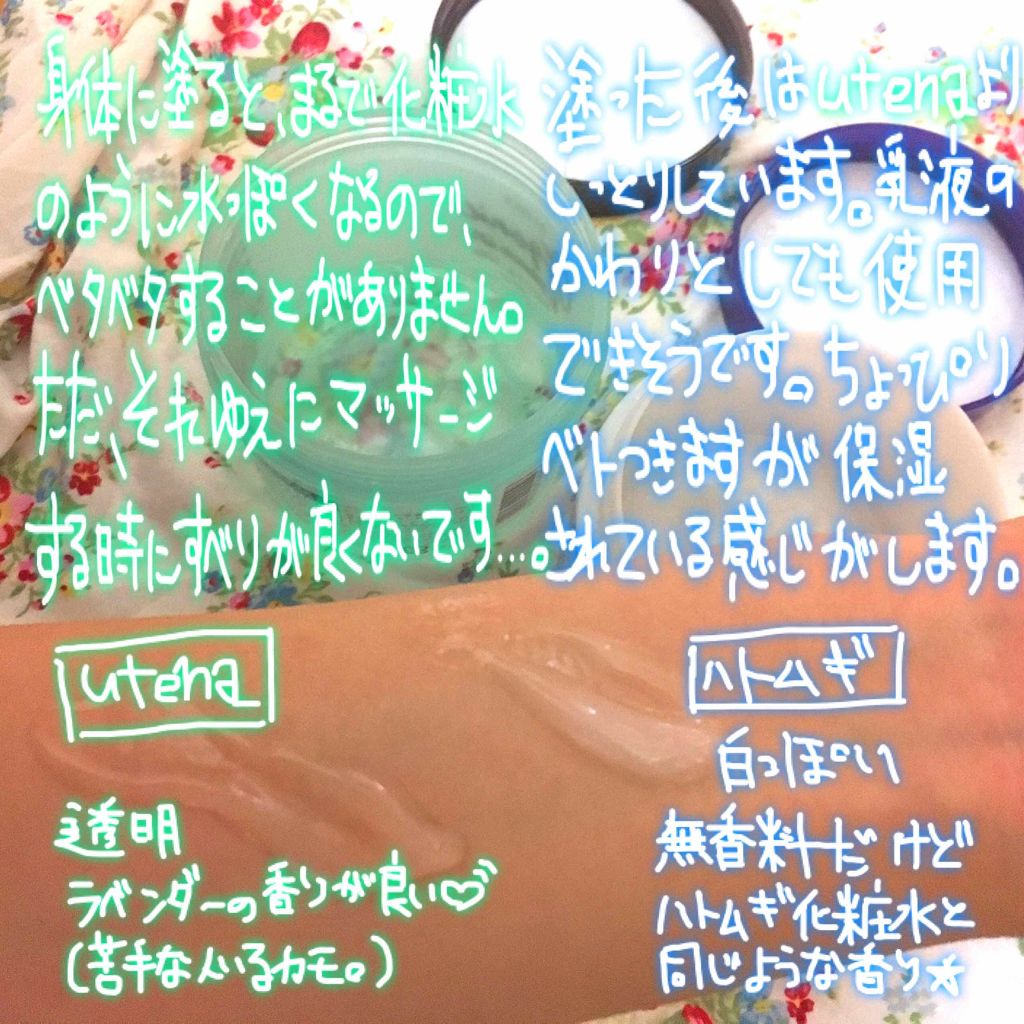 身体に塗ると、まるで化粧水
のように水っぽくなるので、
ベタベタすることがありません。
ただ、それゆえにマッサージ
する時にすべりが良くないです…。
塗った後はutenaより
しっとりしています。乳液の
かわりとしても使用
できそうです。ちょっぴり
ベトつきますが保湿
されている感じがします。
utena
透明
ラベンダーの香りが良い♡
(苦手な人いるカモ。)
ハトムギ
白っぽい
無香料だけど
ハトムギ化粧水と
同じような香り★